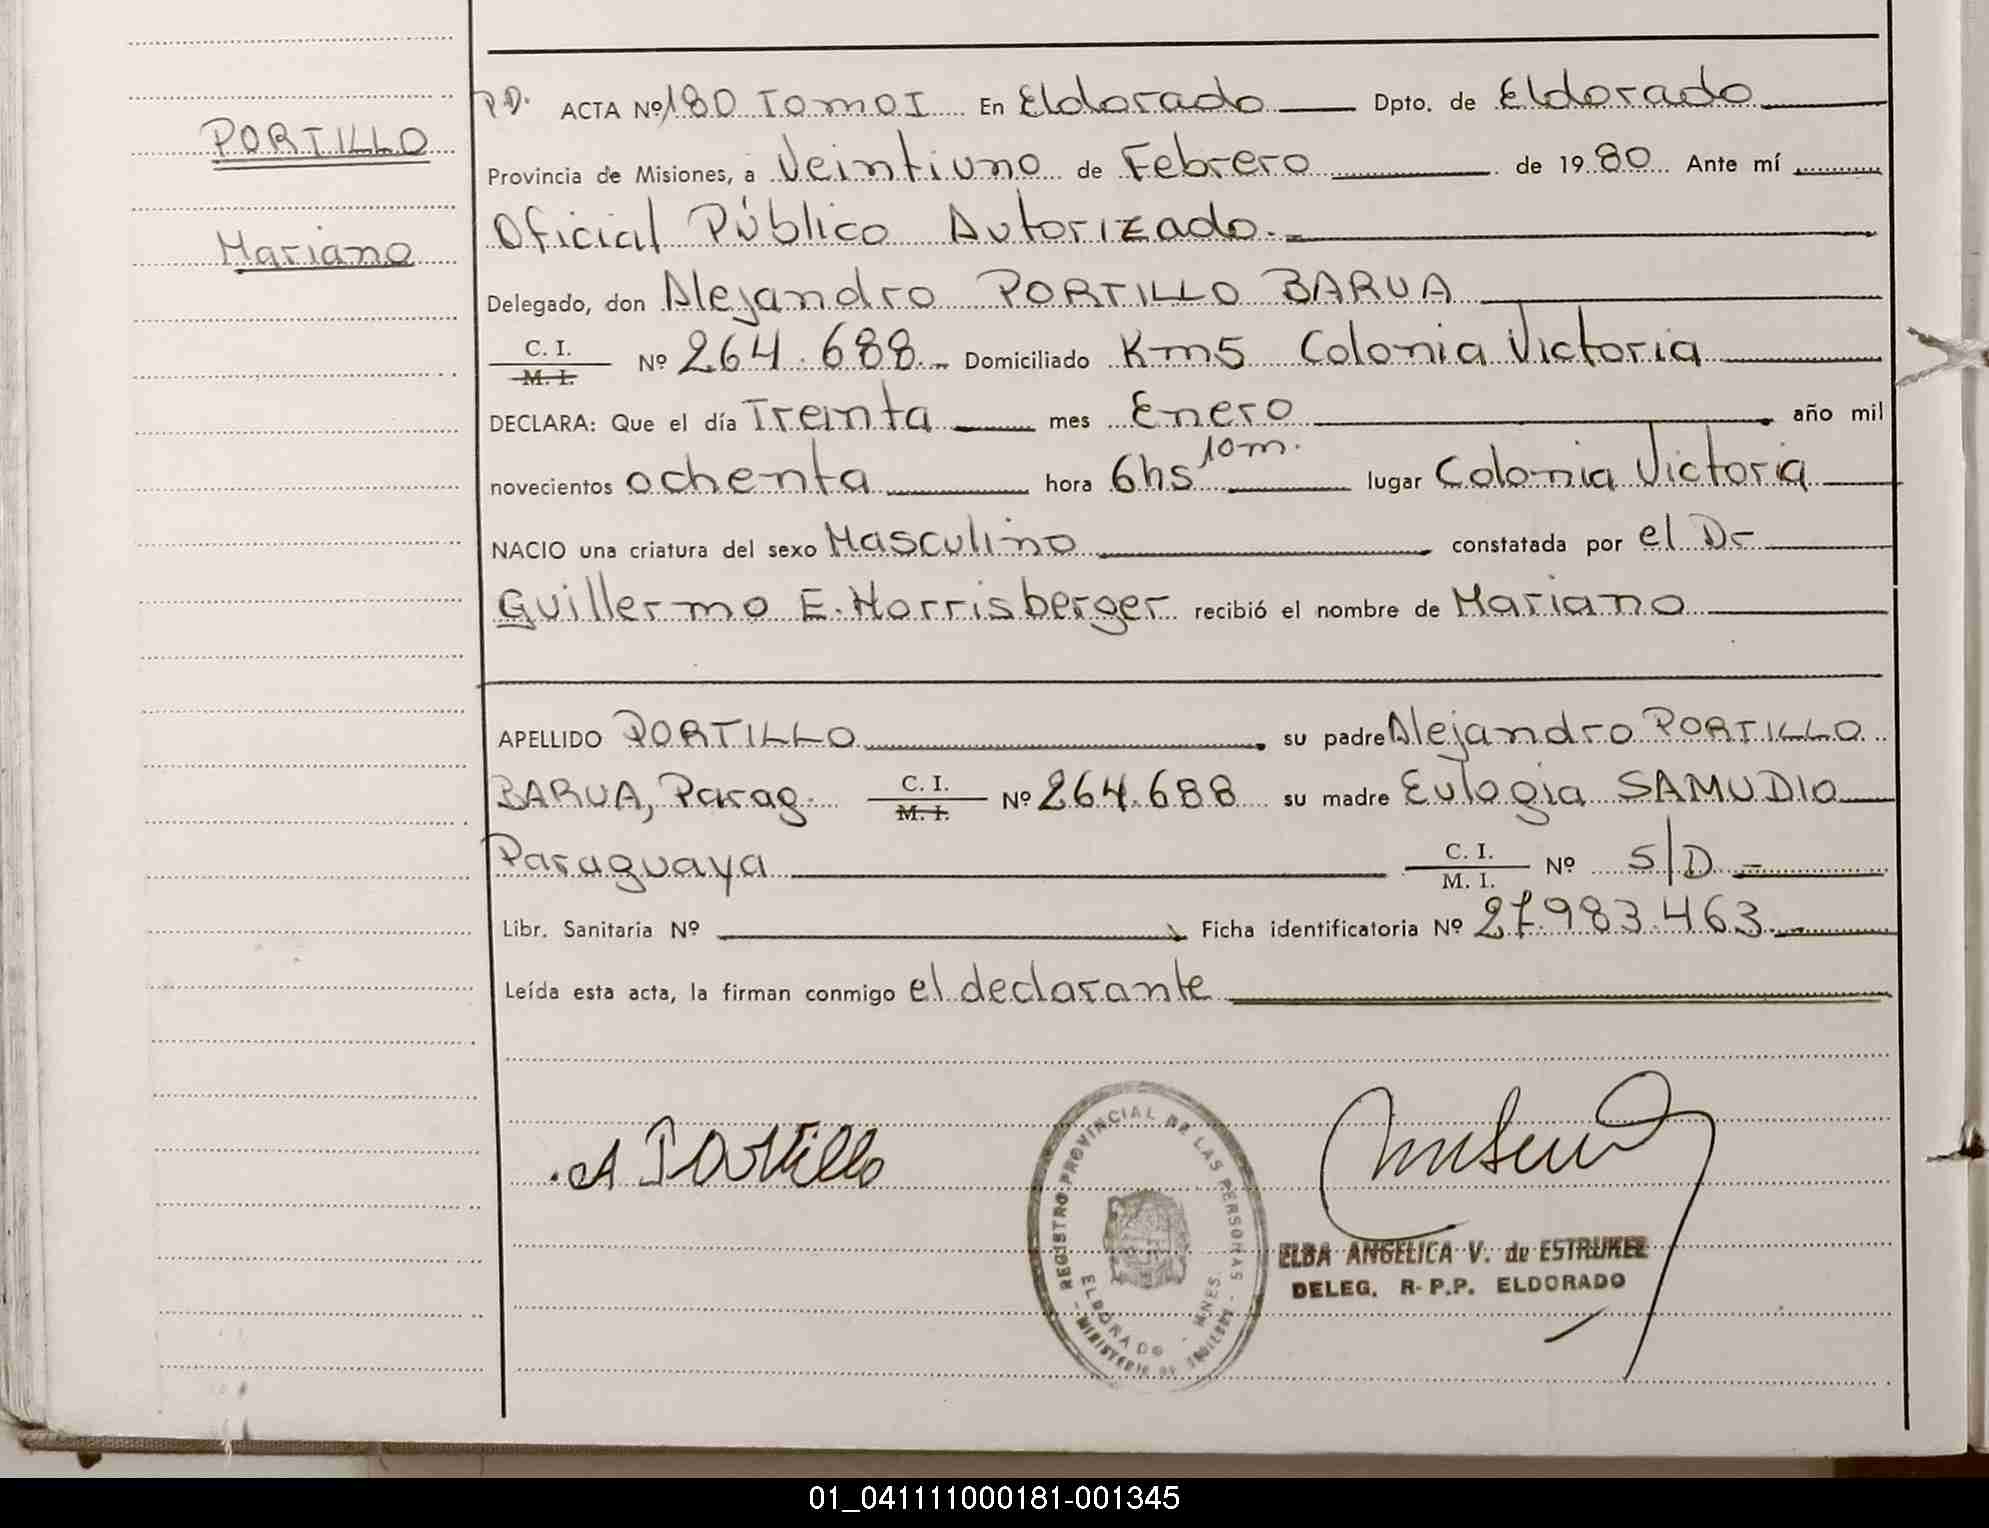 P.D. ACTA Nº 180 Tomo I En Eldorado Dpto. de Eldorado
PORTILLO
Provincia de Misiones, a Veintiuno de Febrero de 1980 Ante mí
Mariano
Oficial Público Autorizado.
Delegado, don Alejandro PORTILLO BARUA
C. I.
M. I. Nº 264.688 Domiciliado Km5 Colonia Victoria
DECLARA: Que el día Treinta mes Enero año mil
novecientos ochenta hora 6hs 10m. lugar Colonia Victoria
NACIO una criatura del sexo Masculino constatada por el Dr
Guillermo E. Horrisberger recibió el nombre de Mariano
APELLIDO PORTILLO su padre Alejandro PORTILLO
BARUA, Parag. C. I. M. I. Nº 264.688 su madre Eulogia SAMUDIO
Paraguaya C. I. M. I. Nº S/D
Libr. Sanitaria Nº Ficha identificatoria Nº 27.983.463
Leída esta acta, la firman conmigo el declarante
A Portillo
REGISTRO PROVINCIAL DE LAS PERSONAS
ELDORADO - MNES.
MINISTERIO DE GOBIERNO
ELBA ANGELICA V. de
DELEG. R.P.P. ELDORADO
01_041111000181-001345